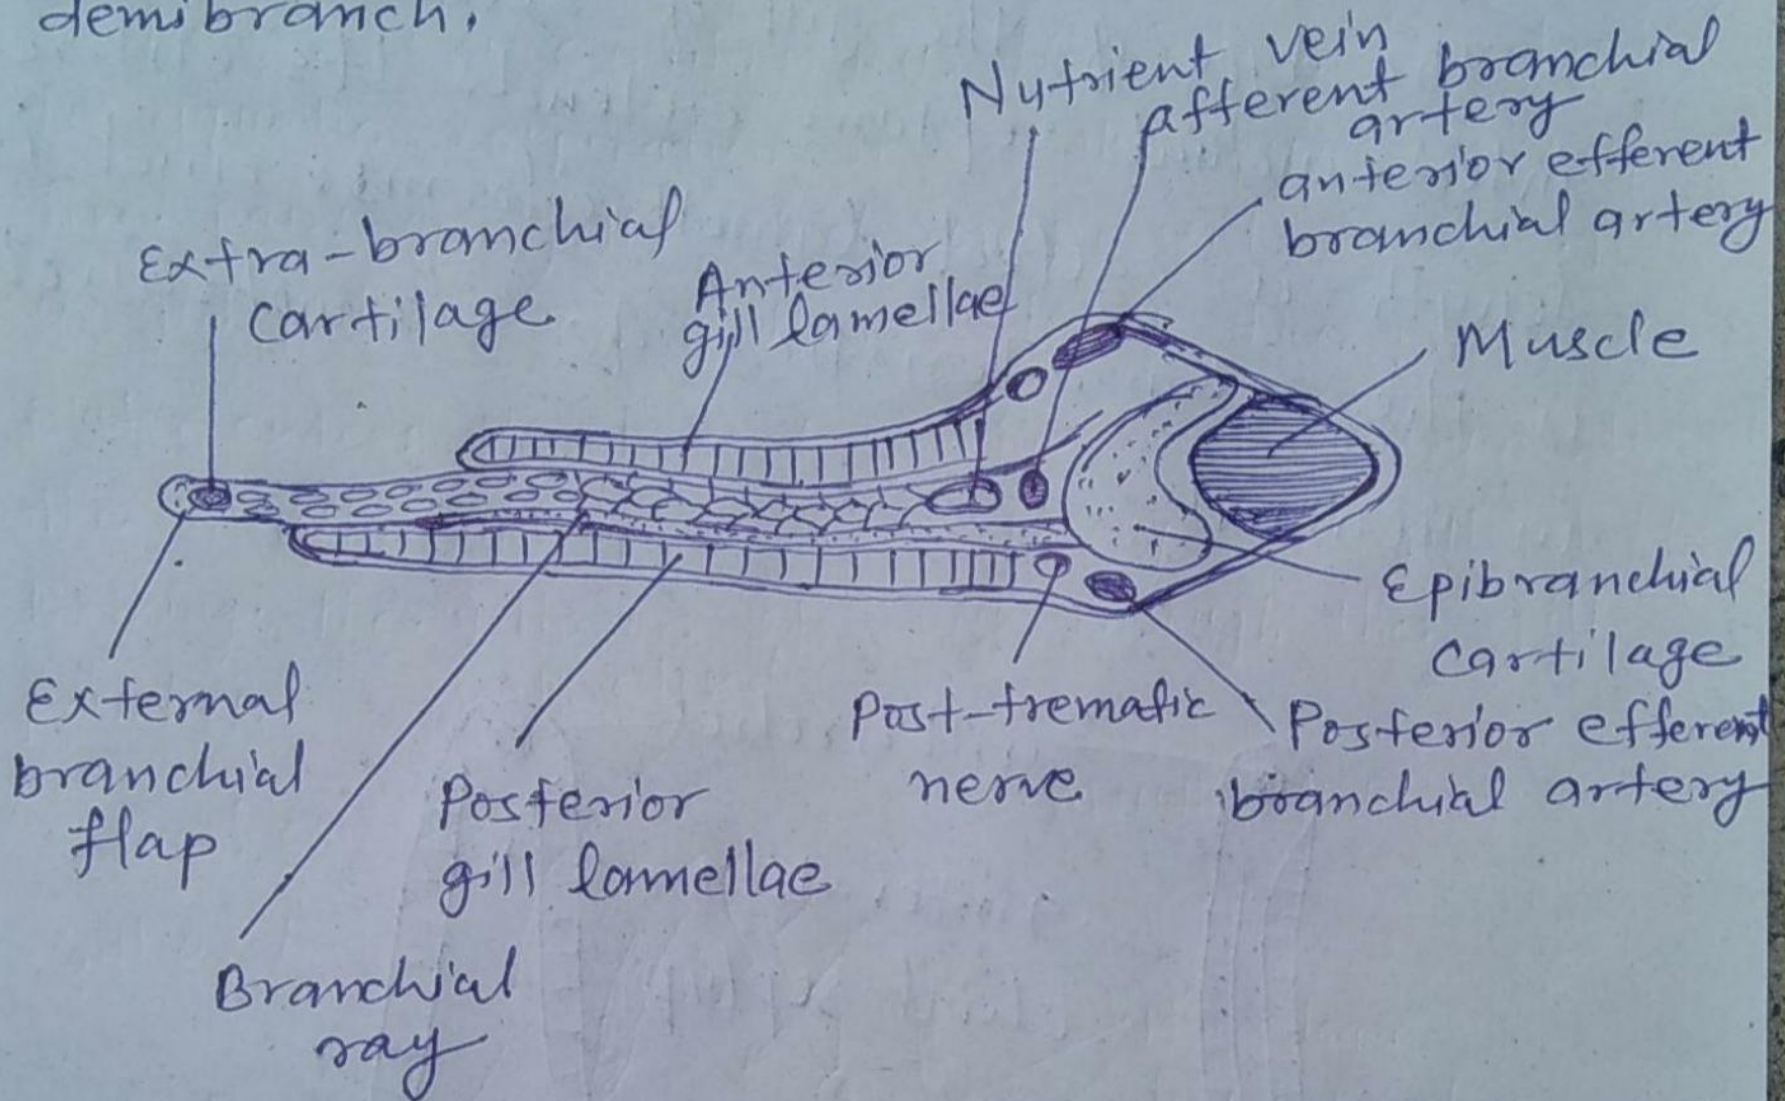 demibranch.
Nutrient vein
afferent branchial
artery
anterior efferent
branchial artery
Extra-branchial
cartilage
Anterior
gill lamellae
Muscle
Epibranchial
cartilage
External
branchial
flap
Posterior
gill lamellae
Post-trematic
nerve
Posterior efferent
branchial artery
Branchial
ray